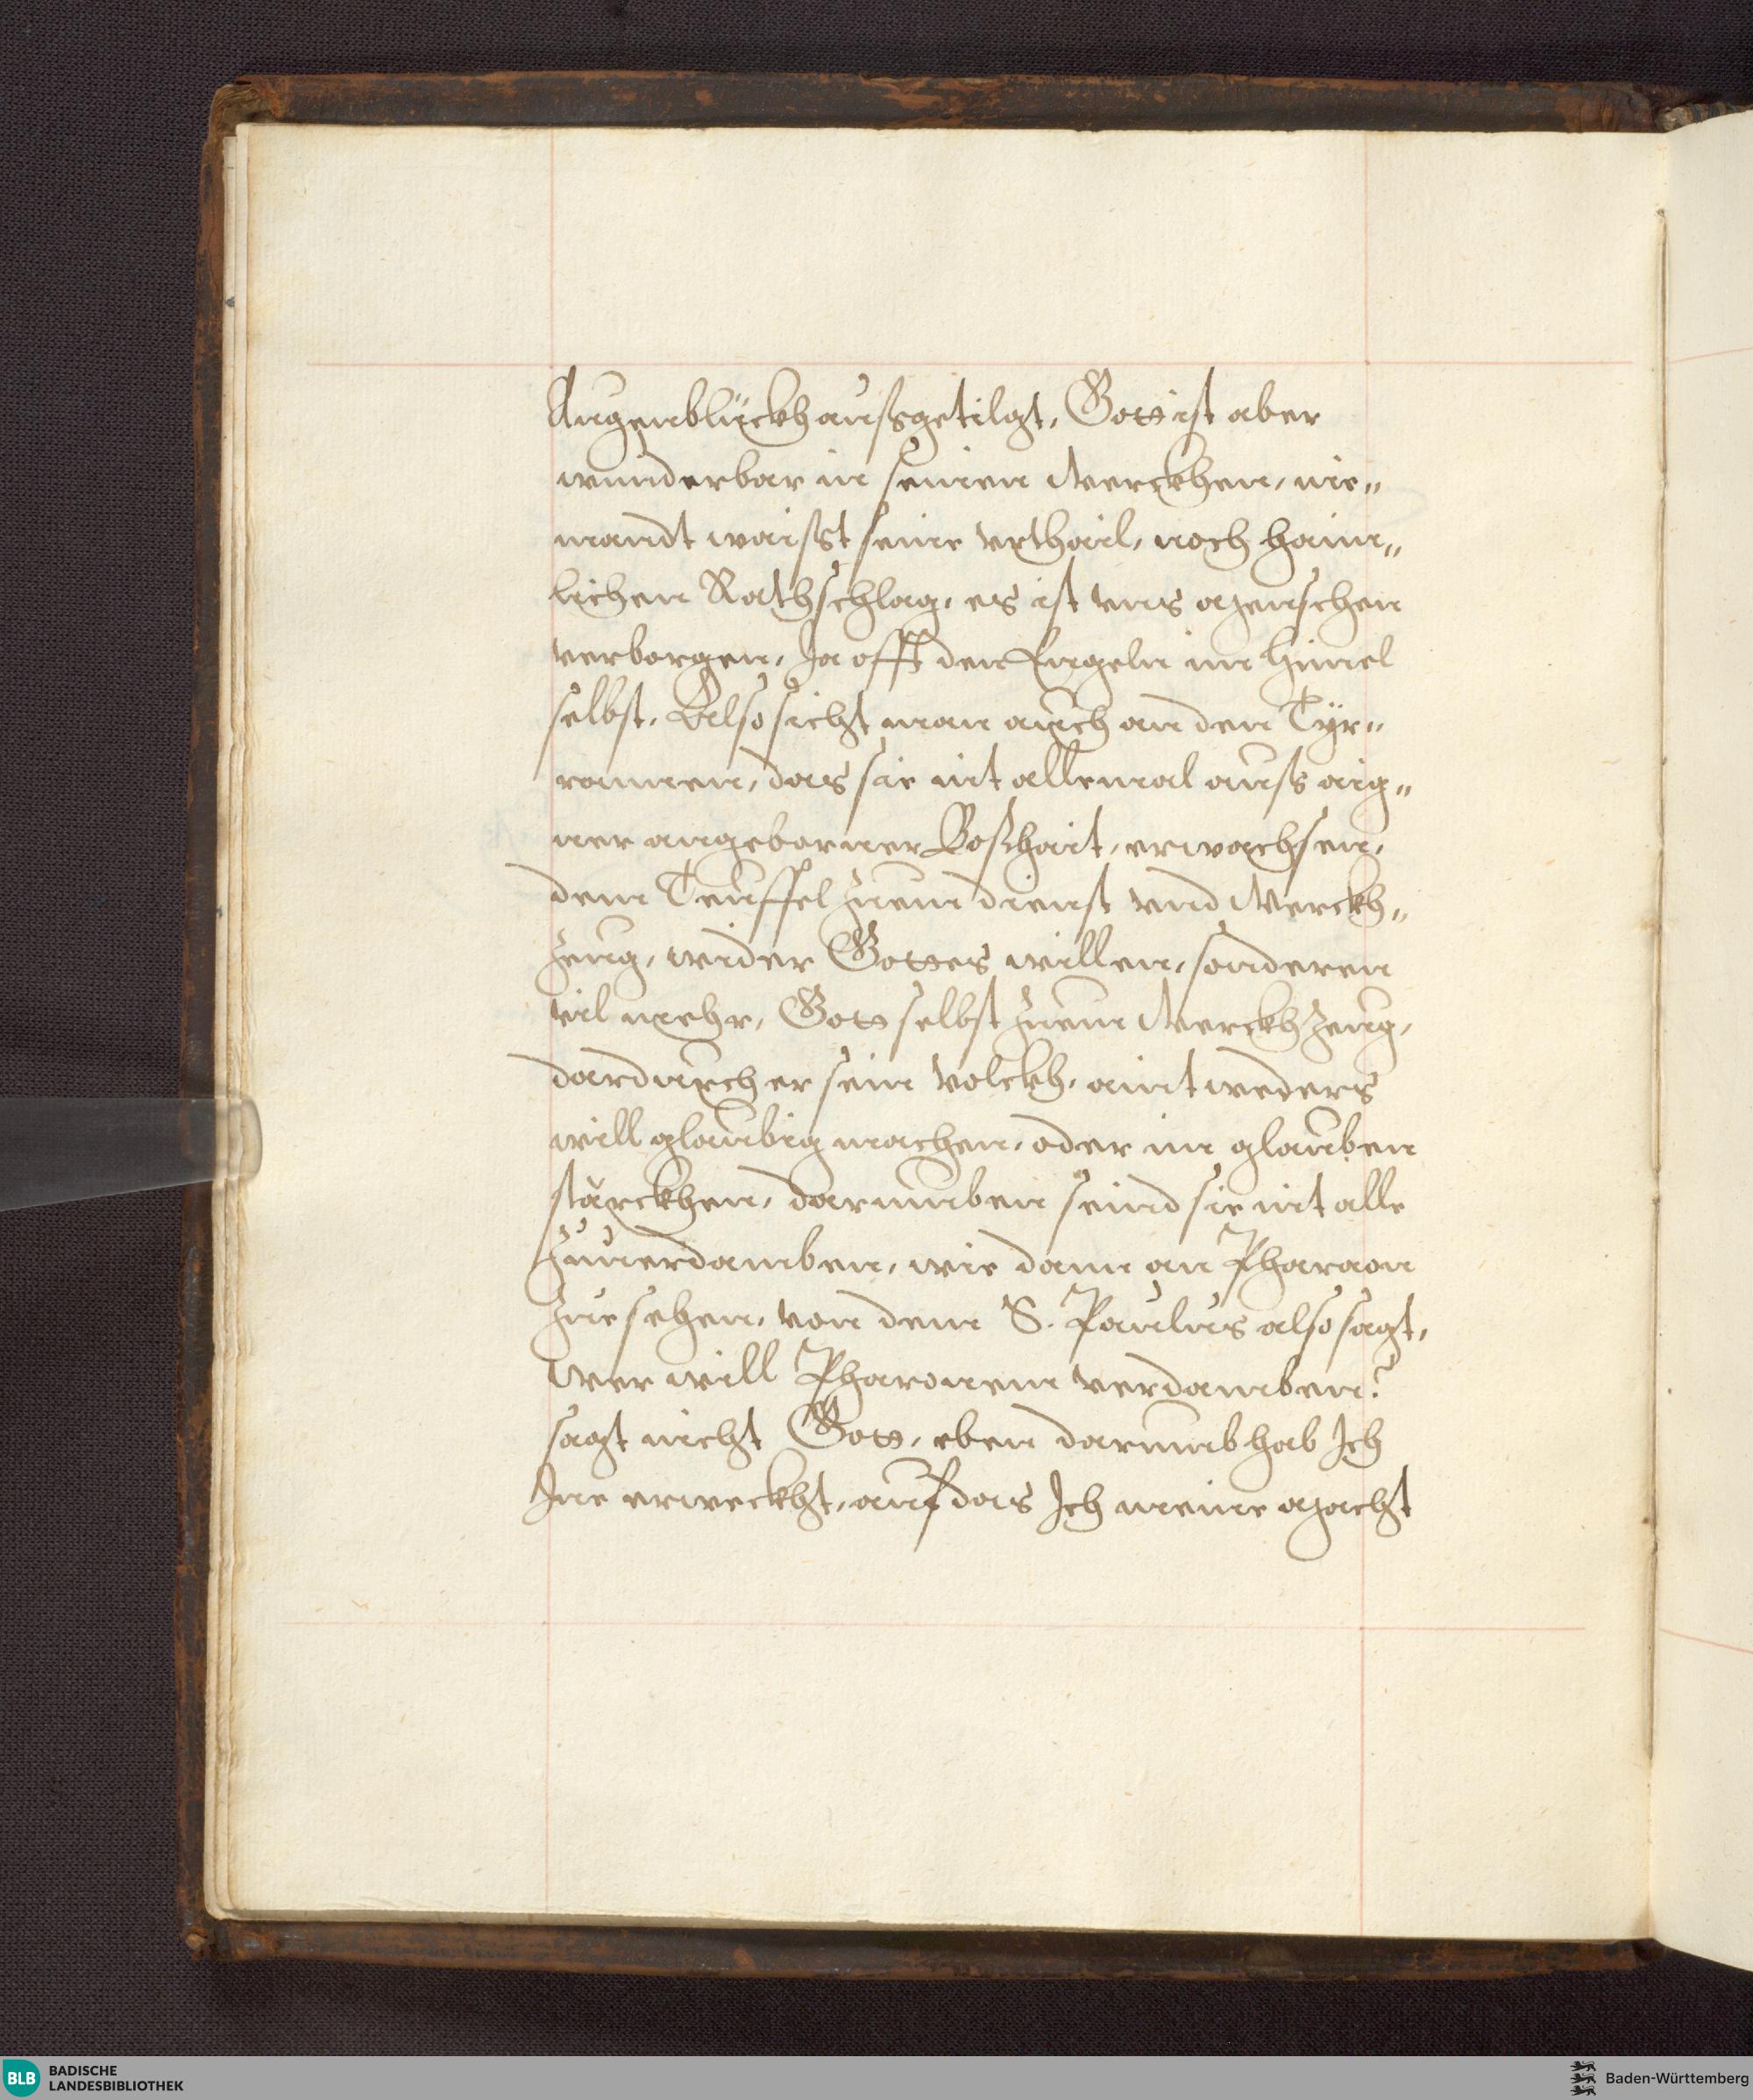 Augenblückh außgetilgt, Gott ist aber
wunderbar in seinen Werckhen, nie„
mandt waißt seine vrthail, noch haim„
lichen Rathschlag, es ist vns Menschen
verborgen, Ja offt den Engeln im himel
selbst, Also sicht man auch an den Tÿr„
rannen, das sie nit allemal auß aig„
ner angeborner Boßhait, erwachsen,
dem Teuffel zuem dienst vnd Werckh„
zeug, wider Gottes willen, sonderen
vil mehr, Gott selbst zuem Werckhzeug,
dardurch er sein volckh, aintweders
will glaubig machen, oder im glauben
stärckhen, darumben seind sie nit alle
zuuerdamben, wie dann an Pharaon
zue sehen, von dem S. Paulus also sagt,
Wer will Pharonem verdamben?
sagt nicht Gott, eben darumb hab Ich
Ine erweckht, auf das Ich meine Macht
BLB BADISCHE
LANDESBIBLIOTHEK
Baden-Württemberg